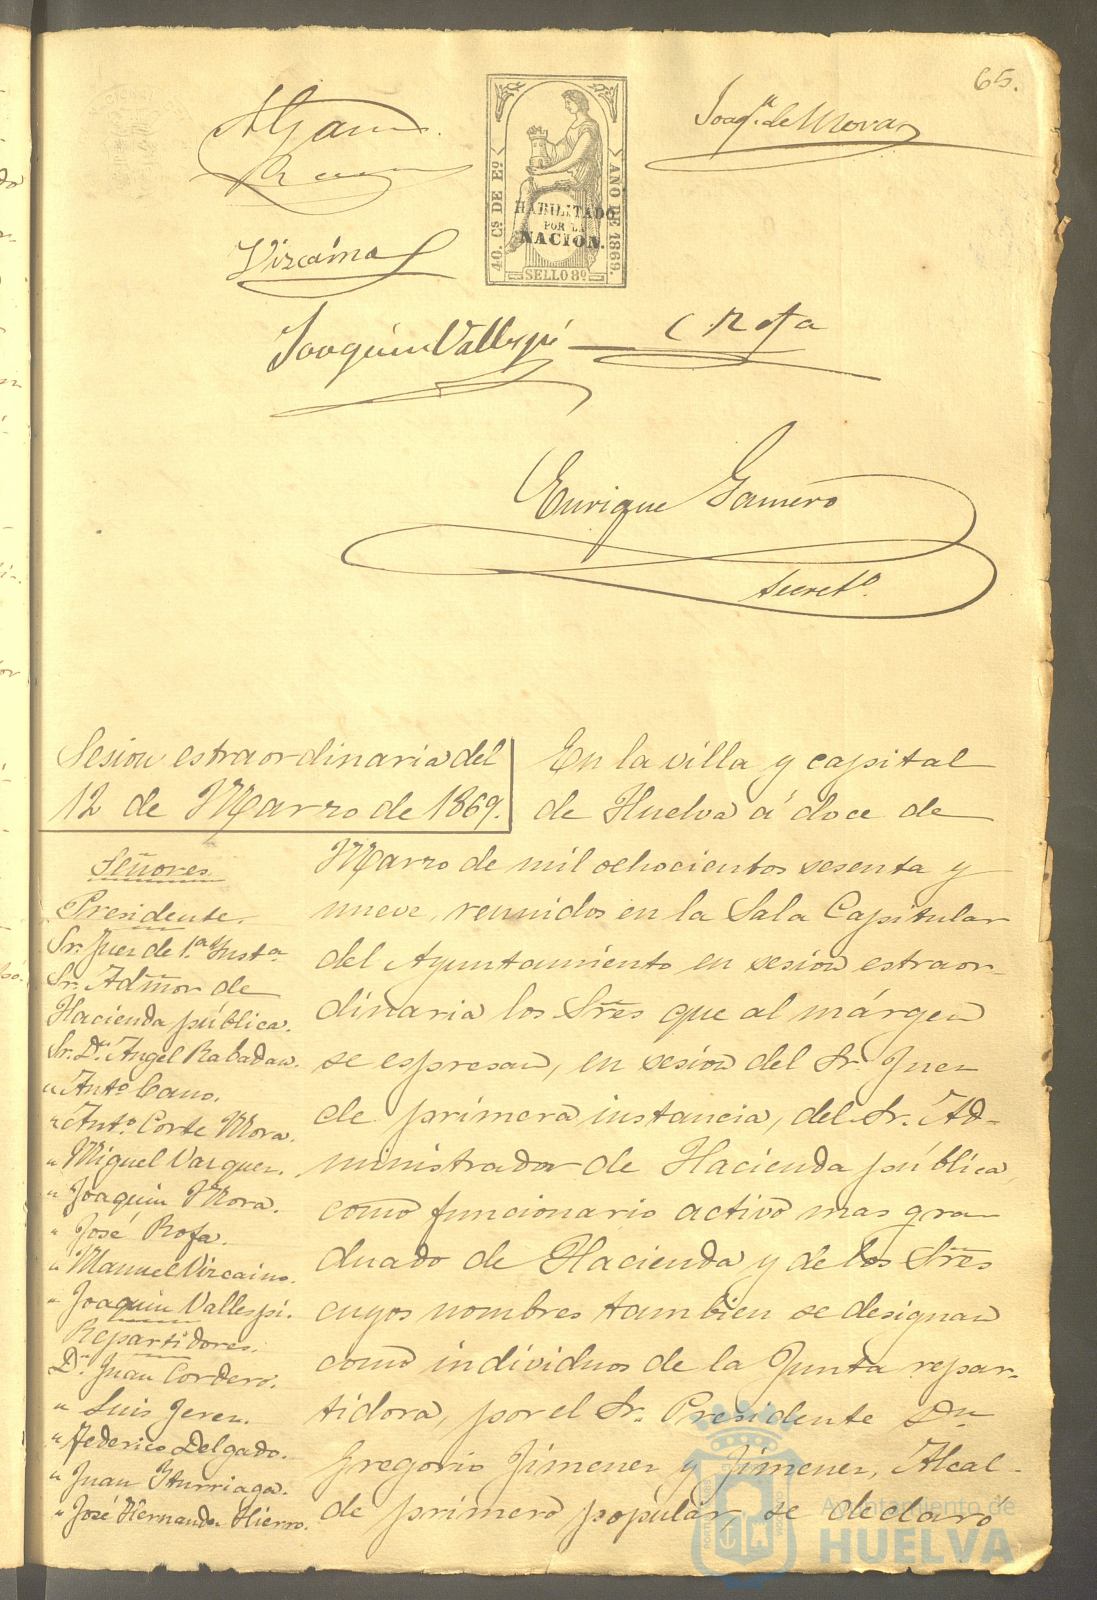 65.
Joaqn. de Mora
40. Cs. DE Eo.
AÑO DE 1869.
HABILITADO
POR LA
NACION.
SELLO 8º
Vizcaino
Joaquin Vallespi
Rofa
Enrique Gamero
Secreto.
Sesion estraordinaria del
12 de Marzo de 1869.
Señores.
Presidente.
Sr. Juez de 1.ª Insta.
Sr. Admor de
Hacienda pública.
Sr. Dn. Angel Rabadan.
" Anto. Cano.
" Anto. Corte Mora.
" Miguel Vazquez.
" Joaquin Mora.
" José Rofa.
" Manuel Vizcaino.
" Joaquin Vallespi.
Repartidores.
Dn. Juan Cordero.
" Luis Jerez.
" Federico Delgado.
" Juan Yturriaga.
" José Hernandez Hierro.
En la villa y capital
de Huelva á doce de
Marzo de mil ochocientos sesenta y
nueve, reunidos en la Sala Capitular
del Ayuntamiento en sesion estraor-
dinaria los Sres que al márgen
se espresan, en sesion del Sr. Juez
de primera instancia, del Sr. Ad-
ministrador de Hacienda pública,
como funcionario activo mas gra-
duado de Hacienda y de los Sres
cuyos nombres tambien se designan
como individuos de la Junta repar-
tidora, por el Sr. Presidente Dn
Gregorio Jimenez y Jimenez, Alcal-
de primero popular, se declaró
Ayuntamiento de
HUELVA